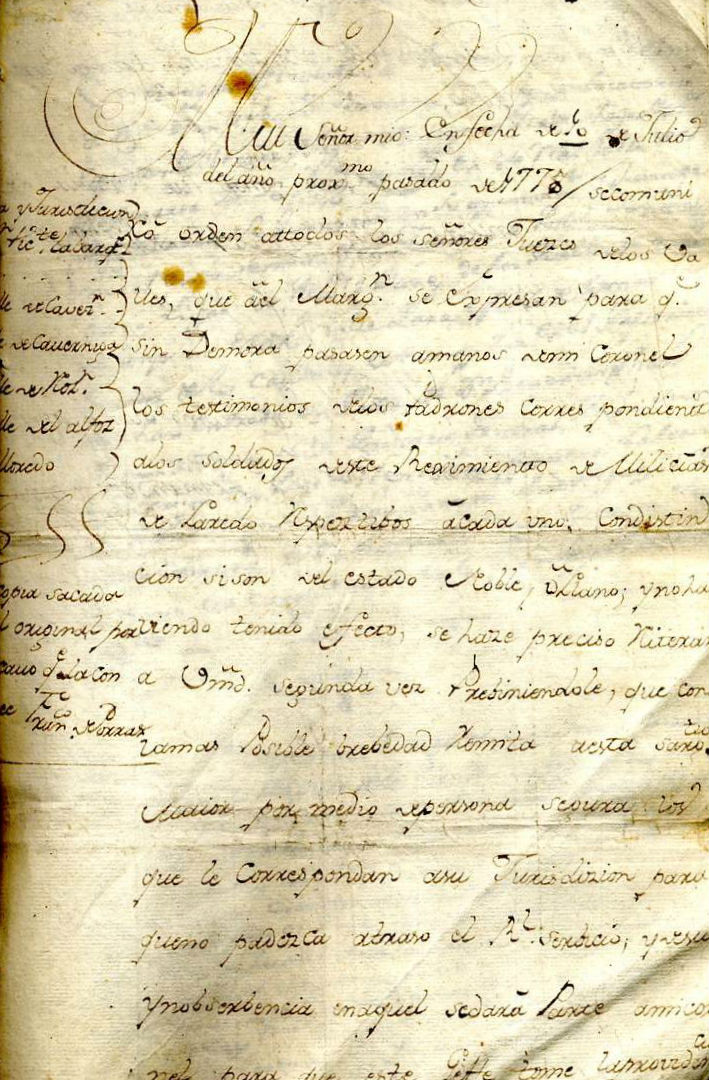 Mui Señor mio: En fecha de 10 de Julio
del año prox.mo pasado de 1775 / se comuni
có orden attodos los señores Juezes delos Va
lles, que àl Marg.n se expresan para q.e
sin Demora pasasen amanos demi Coronel
los testimonios delos Padrones Correspondient
alos Soldados deste Reximiento de Milicias
de Laredo Repartidos àcada uno, Condistin
cion sison del estado Noble, ò Llano; ynoha
viendo tenido efecto, se haze preciso Reiterar
a Vmd. segunda vez Prebiniendole, que con
lamas Posible brebedad Remita aesta Sarg.tia
Maior por medio depersona segura los
que le Correspondan asu Jurisdizion para
queno padezca atraso el R.l Serbicio; y desu
ynobserbencia enaquel sedará Parte amico
nel para que este Jefe tome lasproviden
y Jurisdicion
lle de Cavez.n
de Cavernigo
lle de
lle del alfoz
lloredo
copia sacada
l original por
q.e lacon
Fran.co de Porras